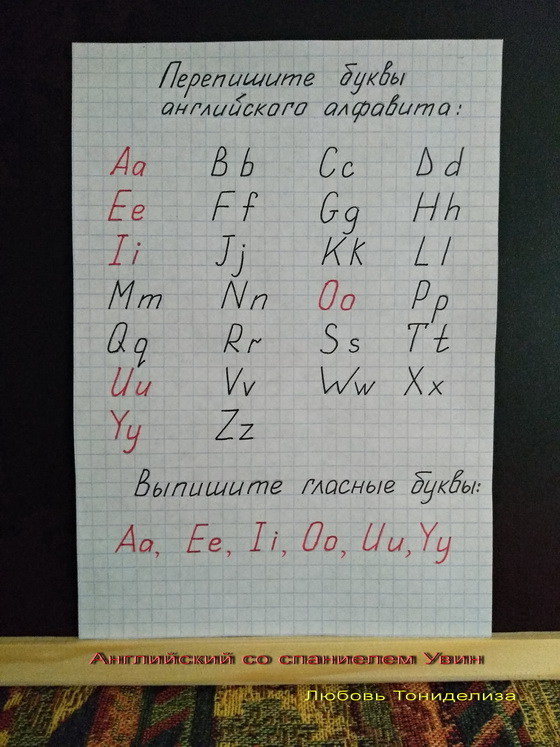 Перепишите буквы
английского алфавита:
Aa Bb Cc Dd
Ee Ff Gg Hh
Ii Jj Kk Ll
Mm Nn Oo Pp
Qq Rr Ss Tt
Uu Vv Ww Xx
Yy Zz
Выпишите гласные буквы:
Aa, Ee, Ii, Oo, Uu, Yy
Английский со спаниелем Увин
Любовь Тониделиза